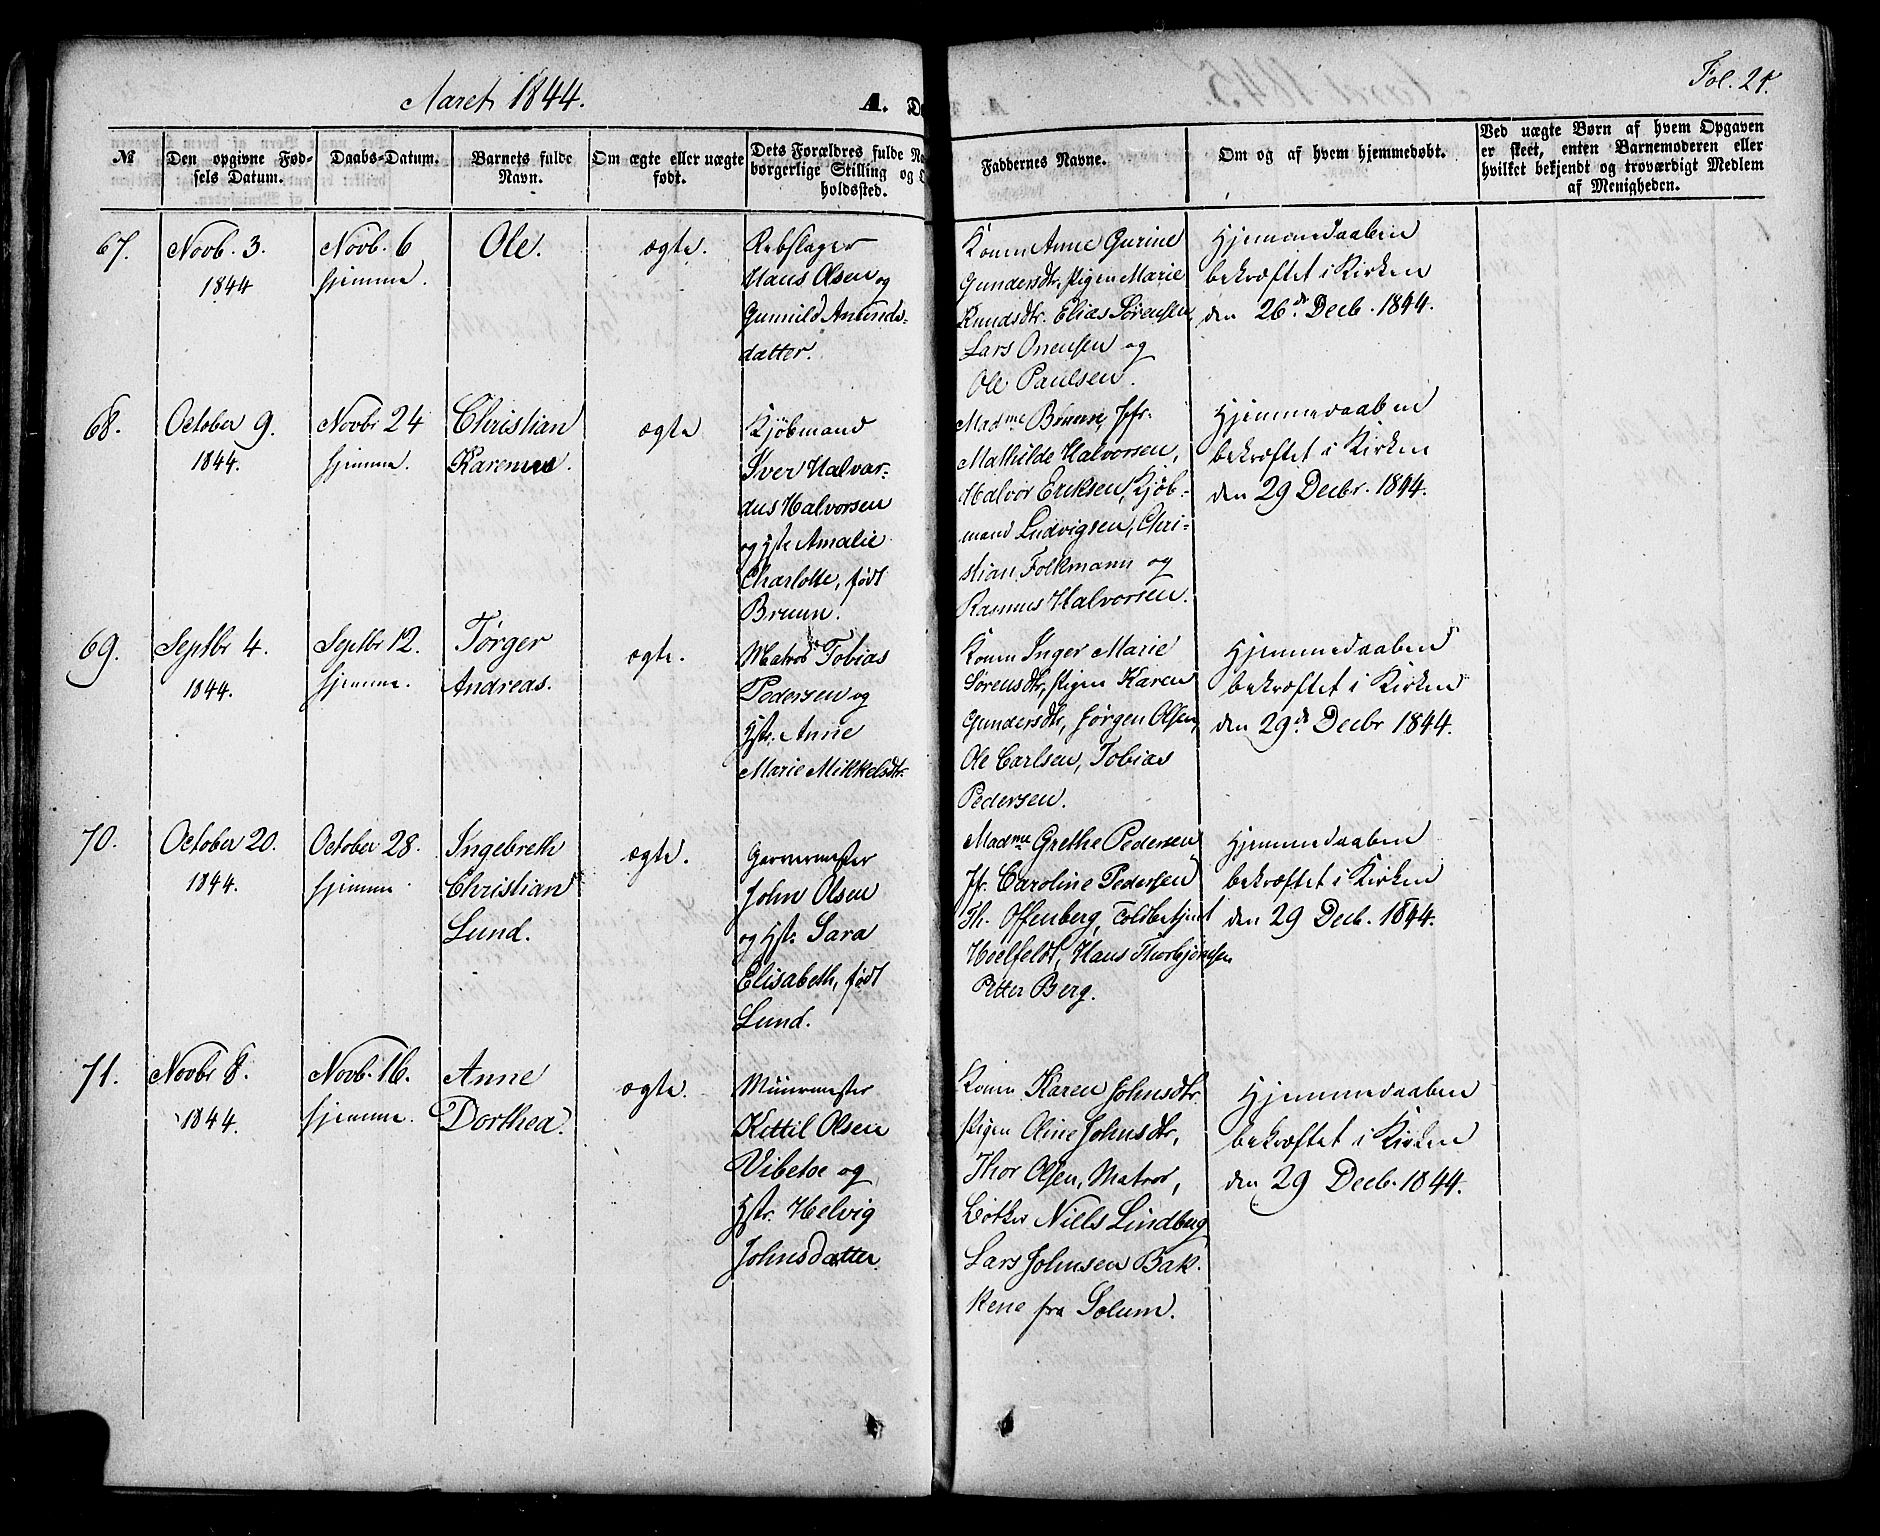 Aaret 1844.
A. D
Fol. 24.
№
Den opgivne Fød-
sels Datum.
Daabs-Datum.
Barnets fulde
Navn.
Om ægte eller uægte
født.
Dets Forældres fulde Na
borgerlige Stilling og O
holdssted.
Faddernes Navne.
Om og af hvem hjemmedøbt.
Ved uægte Børn af hvem Opgaven
er skeet, enten Barnemoderen eller
hvilket bekjendt og troværdigt Medlem
af Menigheden.
67.
Novb. 3.
1844
Novb. 6
hjemme.
Ole.
ægte.
Rebslager
Hans Olsen og
Gunnild Anunds-
datter.
Konen Anne Gurine
Gundersdtr, Pigen Marie
Knudsdtr. Elias Sørensen,
Lars Onensen og
Ole Paulsen.
Hjemmedaaben
bekræftet i Kirken
den 26de Decb. 1844.
68.
October 9.
1844.
Novbr 24
hjemme.
Christian
Karenus.
ægte
Kjøbmand
Iver Halvar-
dus Halvorsen
og Hstr Amalie
Charlotte, født
Bruun.
Madme Bruun, Jfr.
Mathilde Halvorsen,
Halvor Eriksen, Kjøb-
mand Ludvigsen, Chri-
stian Folkmann og
Rasmus Halvorsen.
Hjemmedaaben
bekræftet i Kirken
den 29 Decbr. 1844.
69.
Septbr 4.
1844.
Septbr 12.
hjemme.
Tørger
Andreas.
ægte.
Matros Tobias
Pedersen og
Hstr. Anne
Marie Mikkelsdtr.
Konen Inger Marie
Sørensdtr, Pigen Karen
Gundersdtr, Jørgen Olsen,
Ole Carlsen, Tobias
Pedersen.
Hjemmedaaben
bekræftet i Kirken
den 29de Decbr 1844.
70.
October 20.
1844.
October 28.
hjemme.
Ingebreth
Christian
Lund.
ægte.
Garvermester
John Olsen
og Hstr. Sara
Elisabeth, født
Lund.
Madme Grethe Pedersen
Jfr. Caroline Pedersen
Th. Offenberg, Toldbetjent
Hoelfeldt, Hans Thorbjørnsen
Petter Berg.
Hjemmedaaben
bekræftet i Kirken
den 29 Decb. 1844.
71.
Novbr 8.
1844.
Novb. 16.
hjemme.
Anne
Dorthea.
ægte.
Muurmester
Kittil Olsen
Vibetoe og
Hstr. Helvig
Johnsdatter.
Konen Karen Johnsdtr.
Pigen Oline Johnsdtr,
Thor Olsen, Matros,
Bøtker Niels Lindberg
Lars Johnsen Bak-
kene fra Solum.
Hjemmedaaben
bekræftet i Kirken
den 29 Decb. 1844.